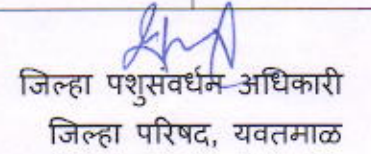 जिल्हा पशुसंवर्धन अधिकारी
जिल्हा परिषद, यवतमाळ